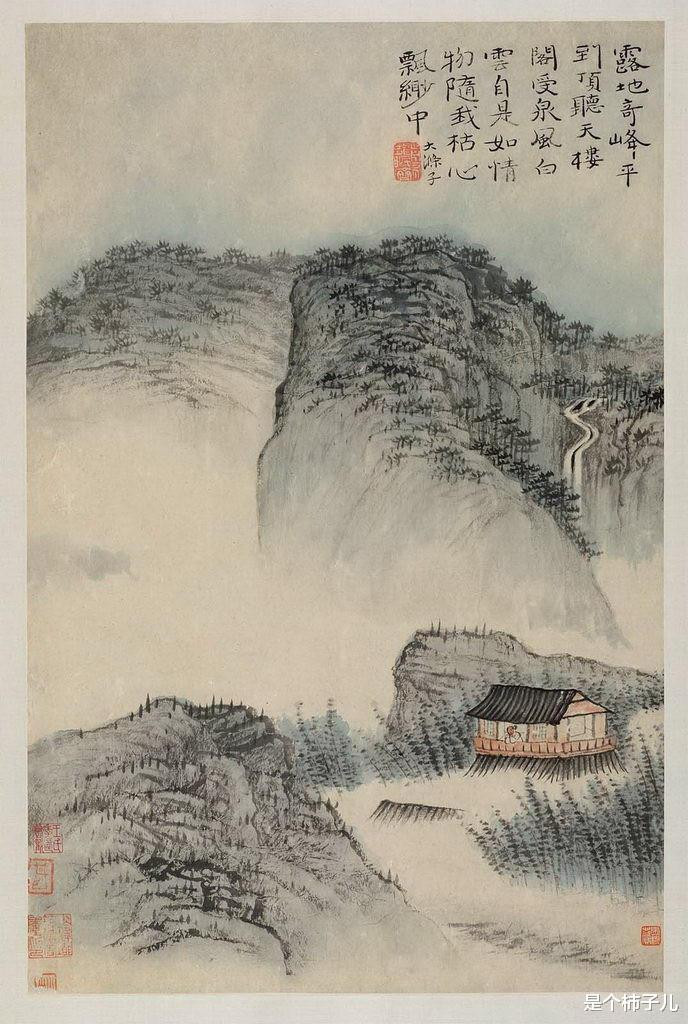 露地奇峰平
到頂聽天樓
閣受泉風白
雲自是如情
物隨我枯心
飄緲中
大滌子
是个柿子儿